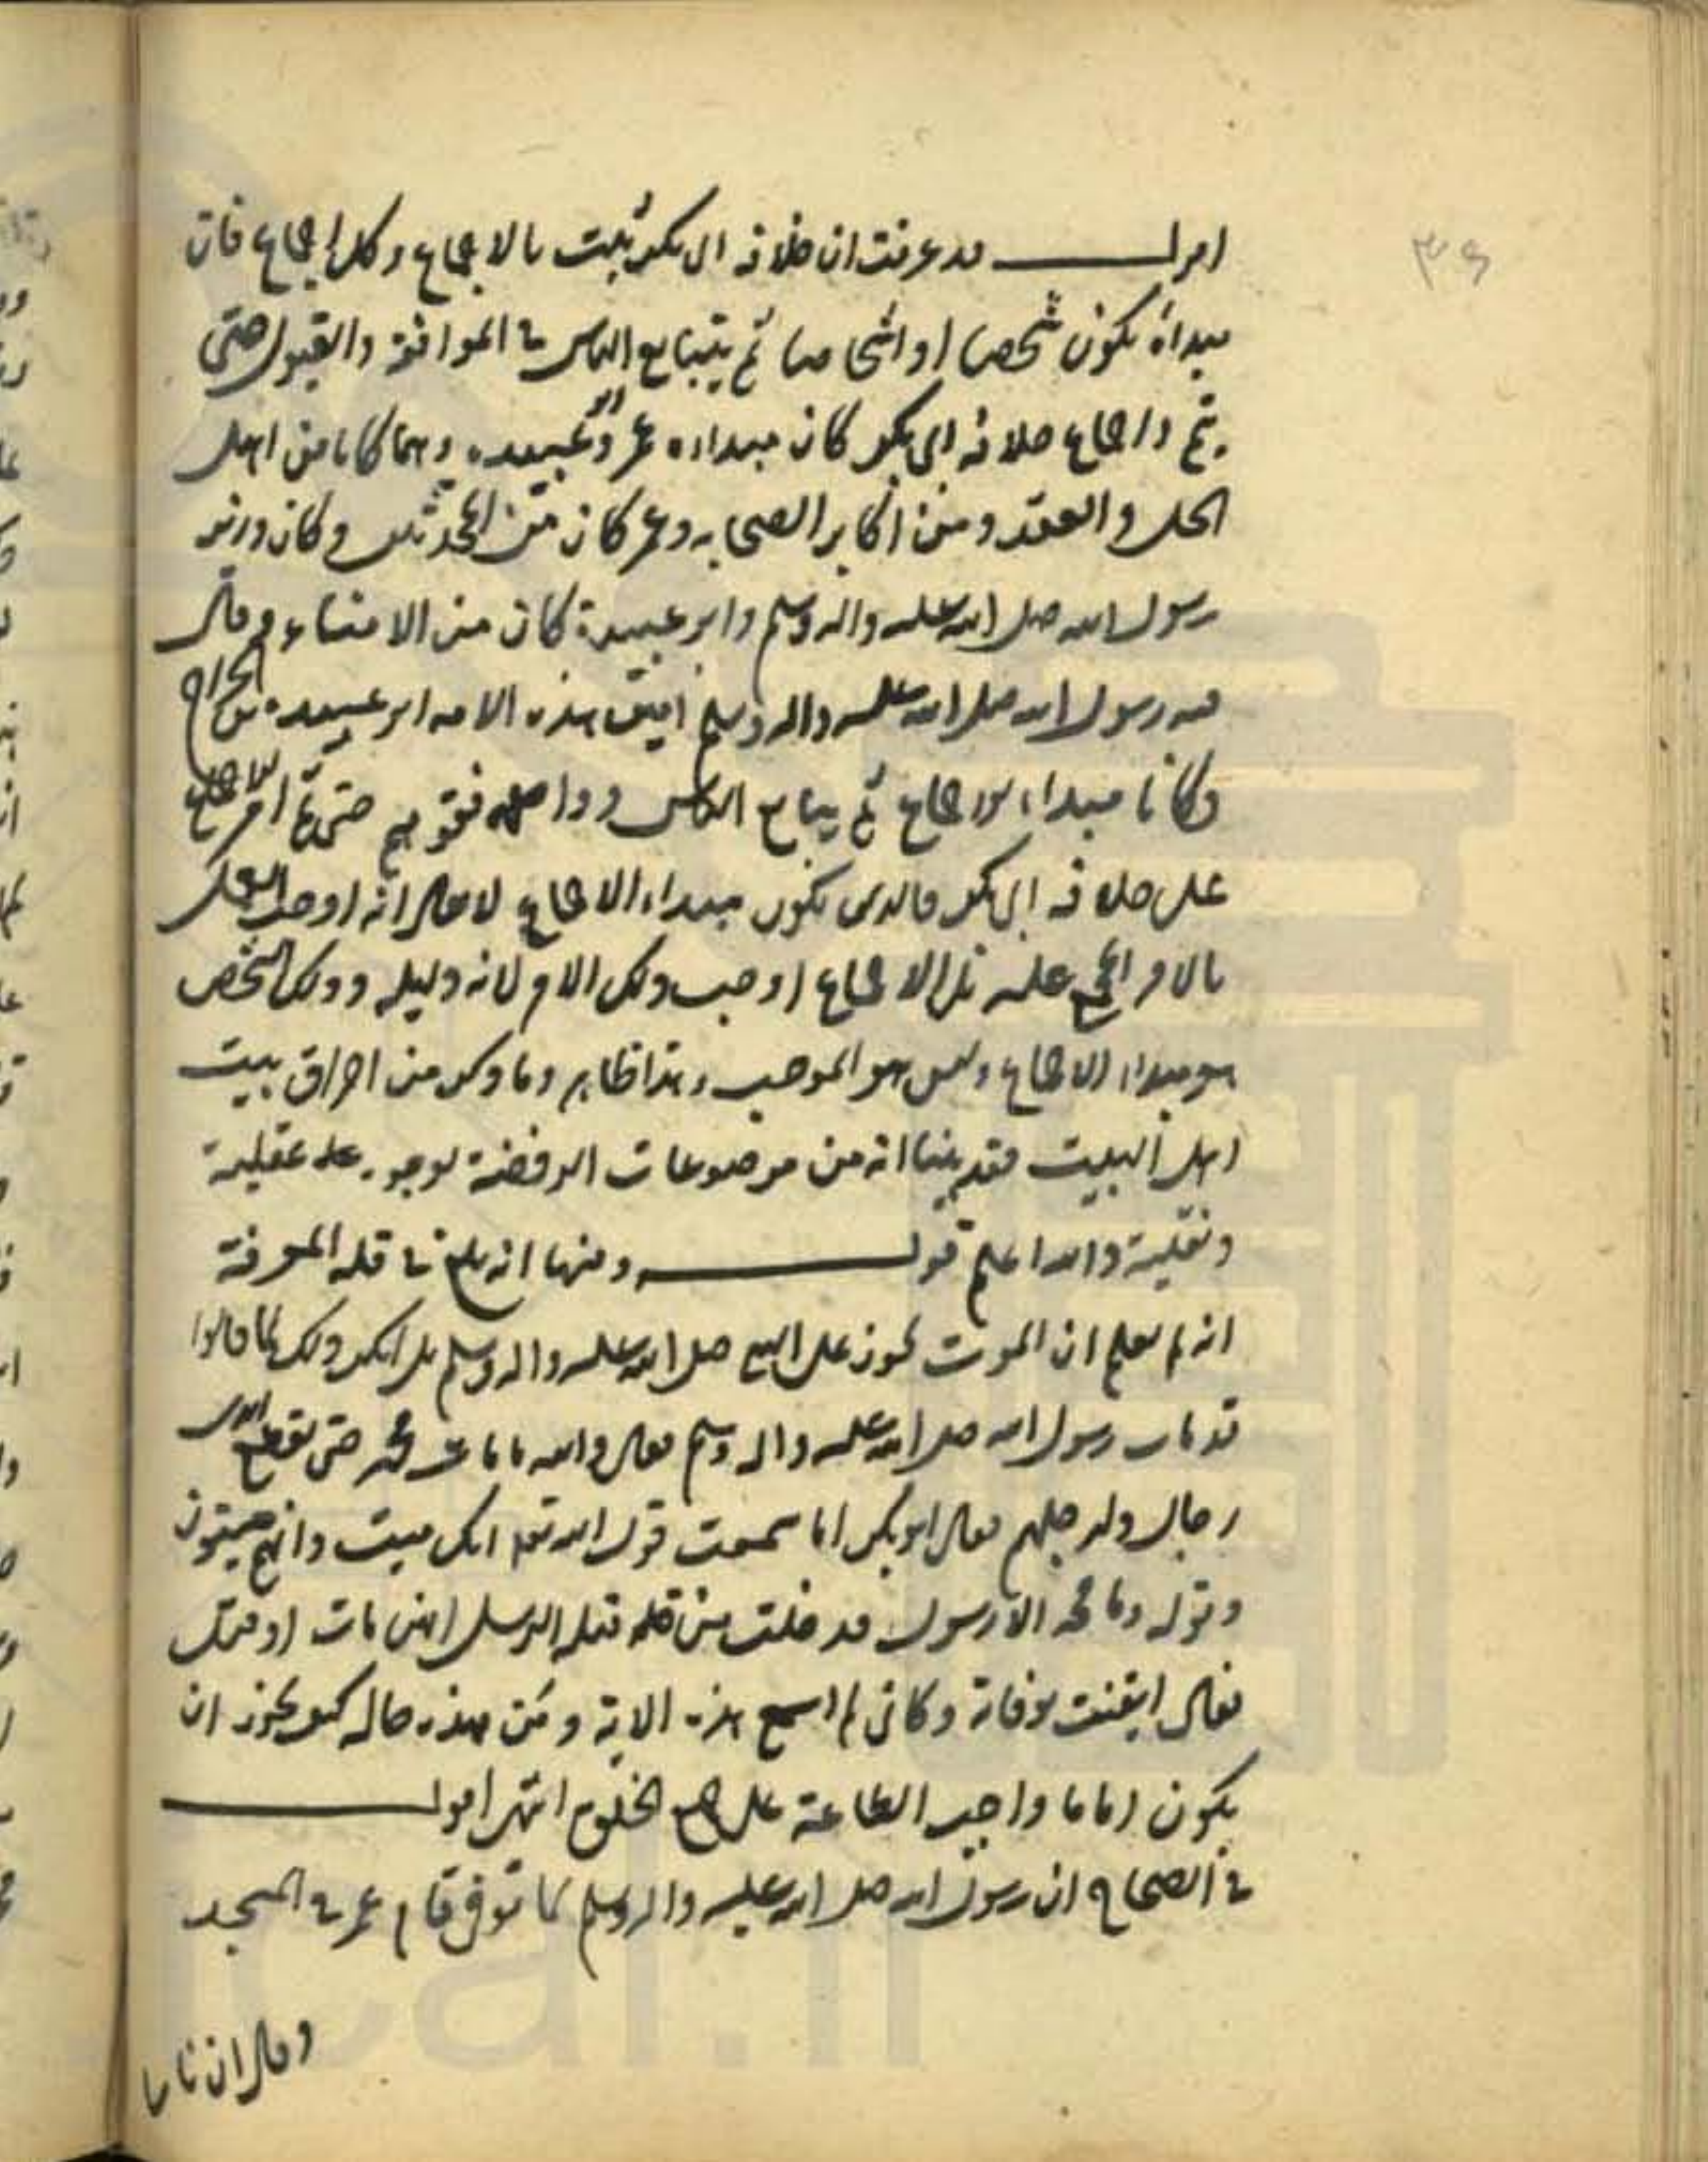 ٣٦
اقول قد عرفت ان خلافة ابی بکر ثبت بالاجماع وکل اجماع فان
مبداه یکون شخصا او اشخاصا ثم یتبایع الناس فی الموافقة والقبول حتی
یتم واجماع خلافة ابی بکر کان مبداه عمر وابو عبیده وهما کانا من اهل
الحل والعقد ومن اکابر الصحابه وعمر کان من المحدثین وکان وزیر
رسول الله صلی الله علیه واله وسلم وابو عبیدة کان من الامناء وقال
فیه رسول الله صلی الله علیه واله وسلم امین هذه الامه ابو عبیده بن الجراح
وکانا مبداء الاجماع ثم یبایع الناس حتی تم امر الاجماع
علی خلافة ابی بکر فالذی یکون مبداء الاجماع لا یقال انه اوجب العمل
بالامر المجمع علیه بل الاجماع اوجب ذلک الامر لانه دلیله وذلک الشخص
هو مبداء الاجماع ولیس هو الموجب وهذا ظاهر وما ذکر من احراق بیت
اهل البیت فقد بینا انه من موضوعات الروفضة لوجوه عقلیة
ونقلیة والله اعلم قوله ومنها انه بلغ فی قلة المعرفة
انه لم یعلم ان الموت یجوز علی النبی صلی الله علیه واله وسلم بل انکر ذلک لما قالوا
قد مات رسول الله صلی الله علیه واله وسلم فقال والله ما مات محمد حتی یقطع ایدی
رجال وارجلهم فقال ابو بکر اما سمعت قول الله تعالی انک میت وانهم میتون
وقوله وما محمد الا رسول قد خلت من قبله الرسل افئن مات او قتل
فقال ایقنت بوفاته وکانی لم اسمع هذه الایة ومن هذه حاله کیف یجوز ان
یکون اماما واجب الطاعة علی جمیع الخلق انتهی اقول
فی الصحاح ان رسول الله صلی الله علیه واله وسلم لما توفی قام عمر فی المسجد
وقال ان ناسا